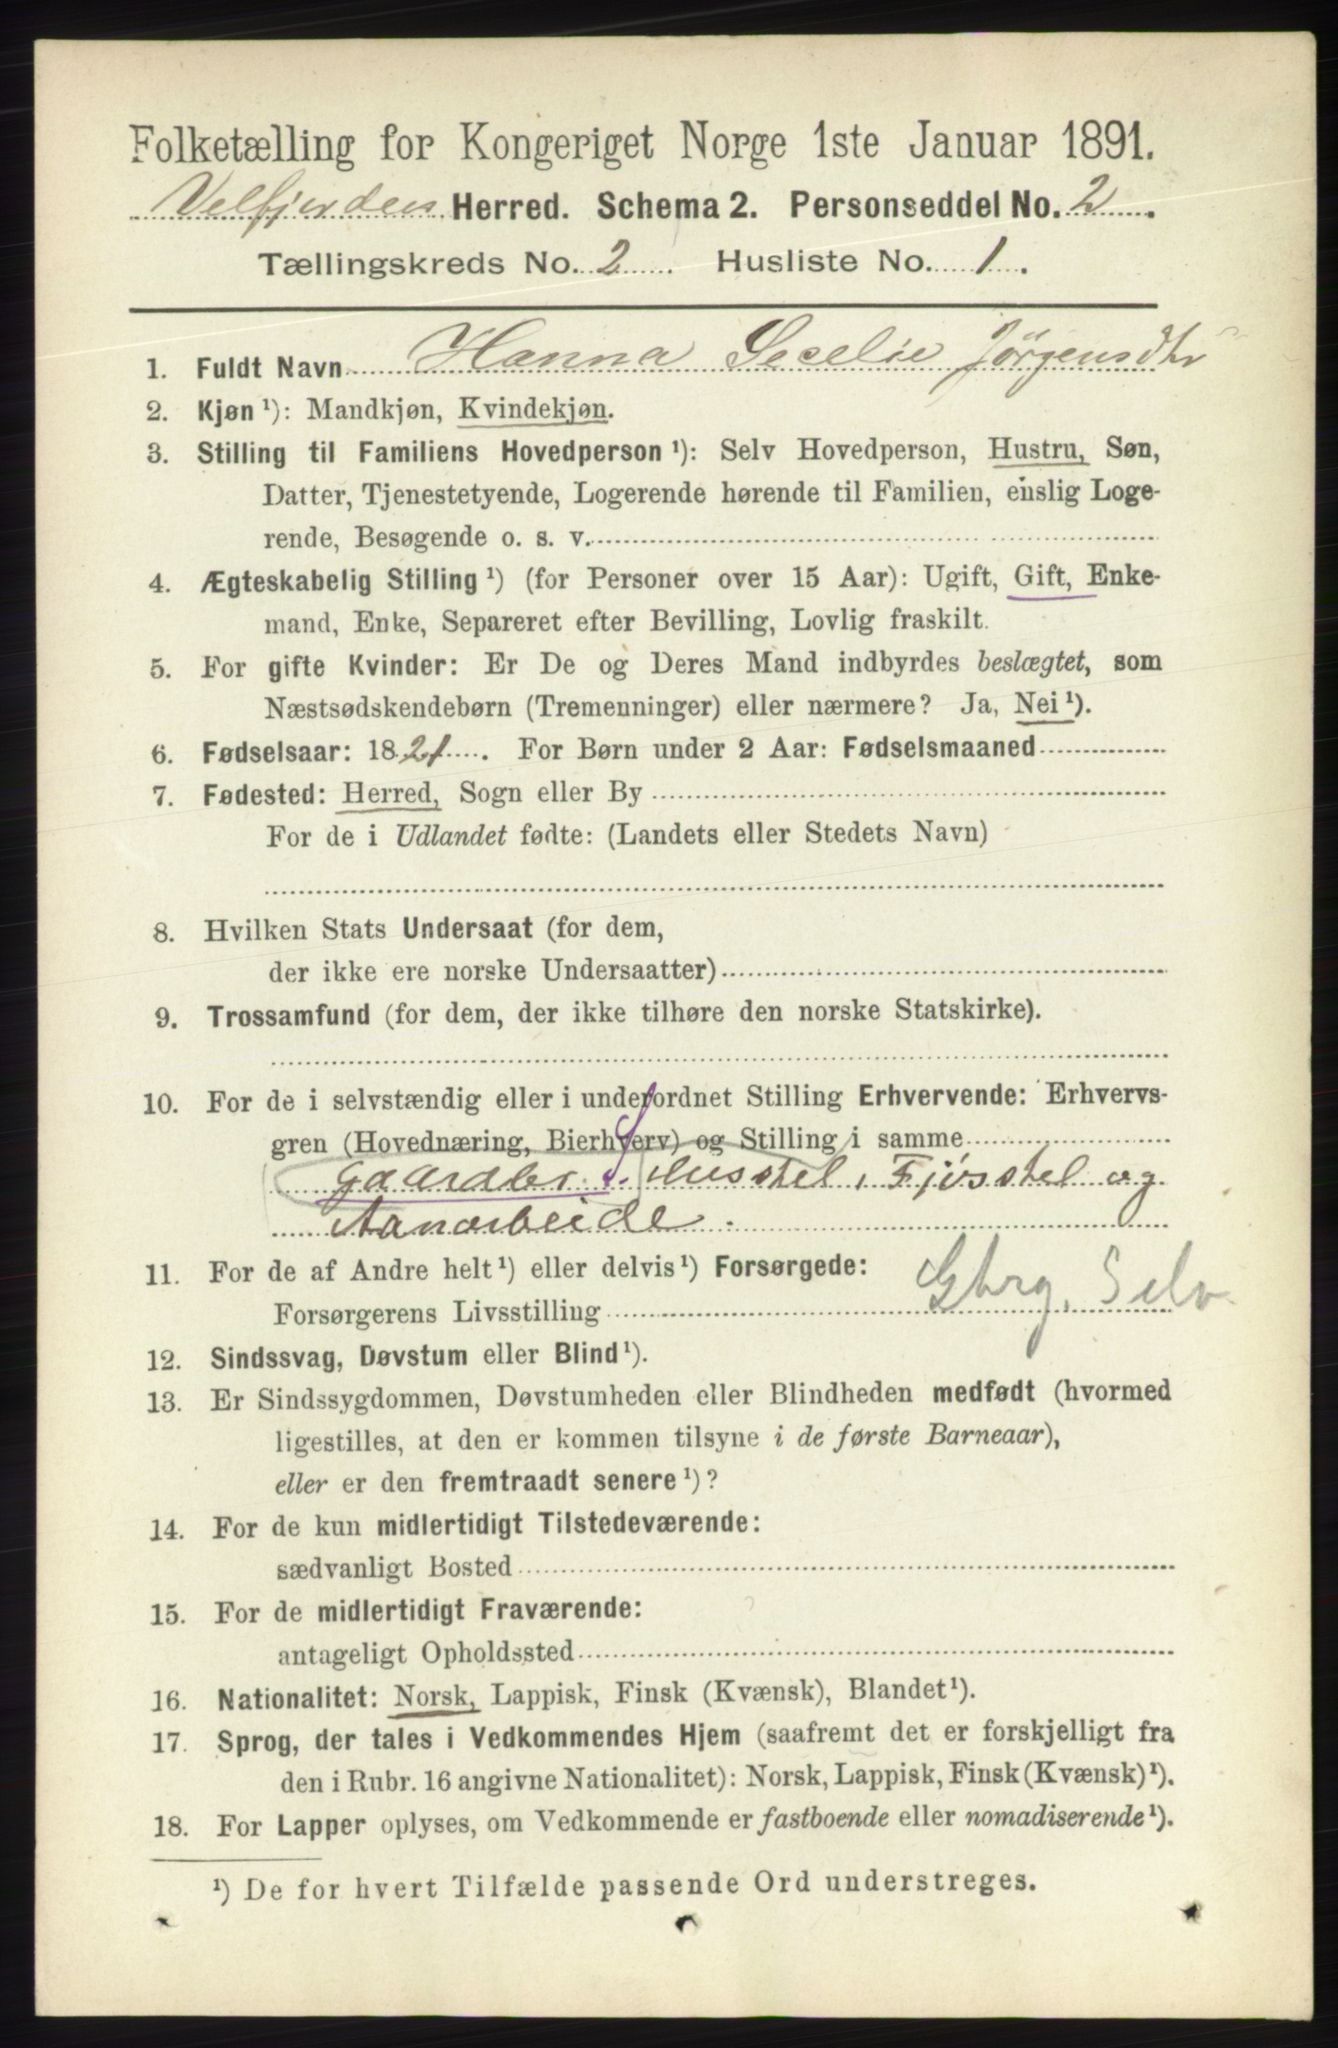 Folketælling for Kongeriget Norge 1ste Januar 1891.
Velfjorden Herred. Schema 2. Personseddel No. 2.
Tællingskreds No. 2 Husliste No. 1.
1. Fuldt Navn Hanna Secelie Jørgensdtr
2. Kjøn ¹): Mandkjøn, Kvindekjøn.
3. Stilling til Familiens Hovedperson ¹): Selv Hovedperson, Hustru, Søn,
Datter, Tjenestetyende, Logerende hørende til Familien, enslig Loge-
rende, Besøgende o. s. v.
4. Ægteskabelig Stilling ¹) (for Personer over 15 Aar): Ugift, Gift, Enke-
mand, Enke, Separeret efter Bevilling, Lovlig fraskilt.
5. For gifte Kvinder: Er De og Deres Mand indbyrdes beslægtet, som
Næstsødskendebørn (Tremenninger) eller nærmere? Ja, Nei ¹).
6. Fødselsaar: 1821. For Børn under 2 Aar: Fødselsmaaned
7. Fødested: Herred, Sogn eller By
For de i Udlandet fødte: (Landets eller Stedets Navn)
8. Hvilken Stats Undersaat (for dem,
der ikke ere norske Undersaatter)
9. Trossamfund (for dem, der ikke tilhøre den norske Statskirke).
10. For de i selvstændig eller i underordnet Stilling Erhvervende: Erhvervs-
gren (Hovednæring, Bierhverv) og Stilling i samme
Gaardbr. s. Husstel, Fjøsstel og
Aanarbeide.
11. For de af Andre helt ¹) eller delvis ¹) Forsørgede:
Forsørgerens Livsstilling Gbrg. Selv
12. Sindssvag, Døvstum eller Blind ¹).
13. Er Sindssygdommen, Døvstumheden eller Blindheden medfødt (hvormed
ligestilles, at den er kommen tilsyne i de første Barneaar),
eller er den fremtraadt senere ¹)?
14. For de kun midlertidigt Tilstedeværende:
sædvanligt Bosted
15. For de midlertidigt Fraværende:
antageligt Opholdssted
16. Nationalitet: Norsk, Lappisk, Finsk (Kvænsk), Blandet ¹).
17. Sprog, der tales i Vedkommendes Hjem (saafremt det er forskjelligt fra
den i Rubr. 16 angivne Nationalitet): Norsk, Lappisk, Finsk (Kvænsk) ¹).
18. For Lapper oplyses, om Vedkommende er fastboende eller nomadiserende ¹).
¹) De for hvert Tilfælde passende Ord understreges.